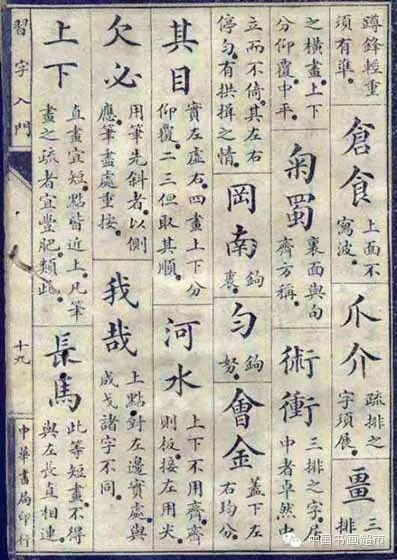 蹲鋒輕重
須有準。
倉食
上面不
寫波。
爪介
疏排之
字須展。
畺
三
排
之橫畫上下
分仰覆中平。
菊蜀
裏面與勾
齊方稱。
術衝
三排之字居
中者卓然中
立而不倚。其左右
停勻。有拱揖之情。
岡南
鉤
裏。
勻
鉤
努。
會金
蓋下左
右均分。
其目
實左虛右。四畫上下分
仰覆。二三但取其順。
河水
上下不用齊。齊
則板。接左用尖。
欠必
用筆先斜者。以側
應。筆盡處重按。
我哉
上點。對左邊實虛。與
成戈諸字不同。
上下
直畫宜短。點皆近上。凡筆
畫之疏者宜豐肥。類此。
長馬
此等短畫。不得
與左長直相連。
習字入門
十九
中華書局印行
中国书画超市